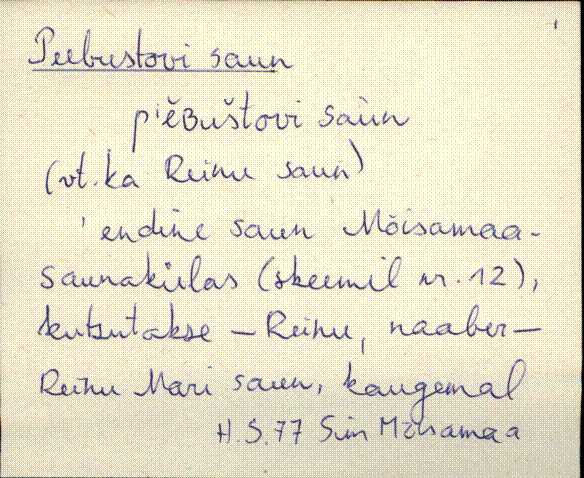 Peebustovi saun
pi̬ĕʙuštovi saùn
(vt. ka Reinu saun)
' endine saun Mõisamaa-
saunakülas (skeemil nr. 12),
kutsutakse – Reinu, naaber –
Reinu Mari saun, kaugemal
H. S. 77 Sim Mõisamaa